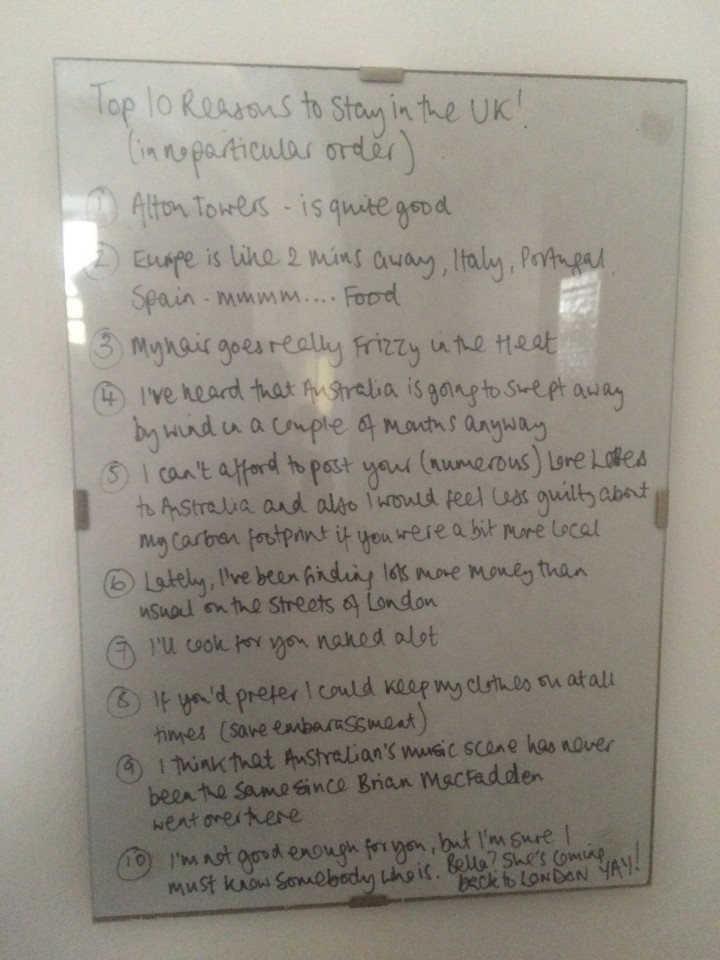 Top 10 Reasons to Stay in the UK!
(in no particular order)
① Alton Towers - is quite good
② Europe is like 2 mins away, Italy, Portugal,
Spain - mmmm.... Food
③ My hair goes really Frizzy in the Heat
④ I've heard that Australia is going to swept away
by wind in a couple of months anyway
⑤ I can't afford to post your (numerous) Love Notes
to Australia and also I would feel less guilty about
my carbon footprint if you were a bit more local
⑥ Lately, I've been finding lots more money than
usual on the streets of London
⑦ I'll cook for you naked a lot
⑧ If you'd prefer I could keep my clothes on at all
times (save embarassment)
⑨ I think that Australian's music scene has never
been the same since Brian MacFadden
went over there
⑩ I'm not good enough for you, but I'm sure I
must know somebody who is. Bella? She's coming
back to LONDON YAY!